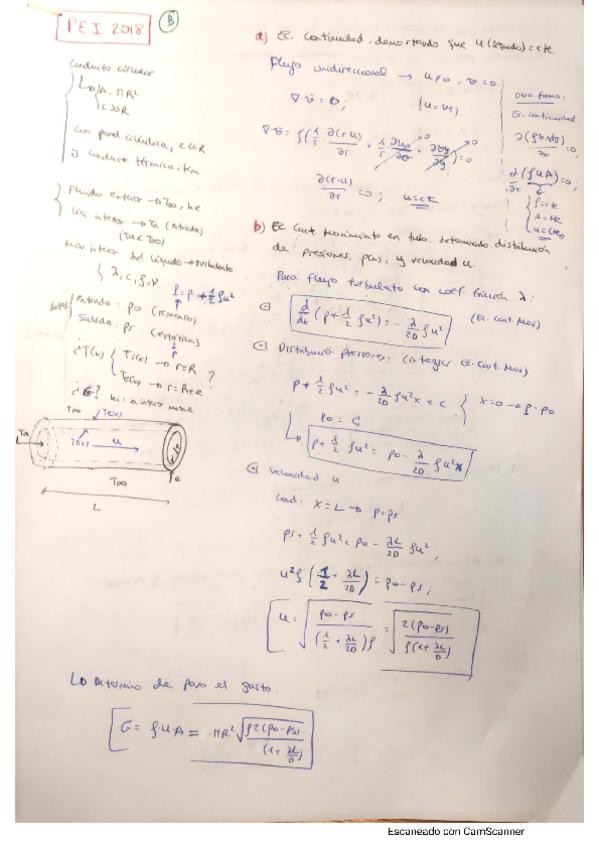 PEI 2018
B
Conducto circular
A = πR²
L>>R
con pared cilíndrica, e<<R
y conduct térmica, km
Fluido exterior → T∞, he
Liq interior → Ta (entrada)
(Ta < T∞)
Mov interior del líquido → turbulento
λ, c, ρ, ν
P = p + 1/2 ρu²
datos
entrada: po (remanso)
Salida: ps (estática)
p
¿T(x)
Ti(x) → r=R
Te(x) → r=R+e
?
¿G?
T∞
Te(x)
Ta
Ti(x)
u
T∞
e
L
a) Ec. Continuidad. demostrando que u(líquido) = cte.
Flujo unidireccional → u≠0, v=0.
∇·v̄ = 0;
∂(r·u)/∂r = 0; u = cte
Otra forma:
Ec. continuidad
∂(ρuA)/∂x = 0;
ρ = cte
A = cte
u = cte,
b) Ec Cant Movimiento en tubo, determinando distribución
de presiones, p(x), y velocidad u.
Para flujo turbulento con coef. fricción λ:
d/dx (p + 1/2 ρu²) = - λ/2D ρu²
(Ec. Cant. Mov)
Distribución presiones: (integrar Ec. Cant. Mov)
p + 1/2 ρu² = - λ/2D ρu²x + C
x=0 → P=po
po = C
p + 1/2 ρu² = po - λ/2D ρu²x
Velocidad u
Cond: x = L → p=ps
ps + 1/2 ρu² = po - λL/2D ρu²,
u²ρ (1/2 + λL/2D) = po - ps;
u = √((po-ps)/((1/2 + λL/2D)ρ)) = √(2(po-ps)/(ρ(1+λL/D)))
Determino de paso el gasto.
G = ρ·u·A = πR² √(ρ2(po-ps)/(1+λL/D))
Escaneado con CamScanner